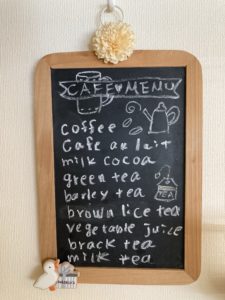 CAFE♥MENU
coffee
Cafe au lait
milk cocoa
green tea
barley tea
TEA
brown lice tea
vegetable juice
brack tea
milk tea